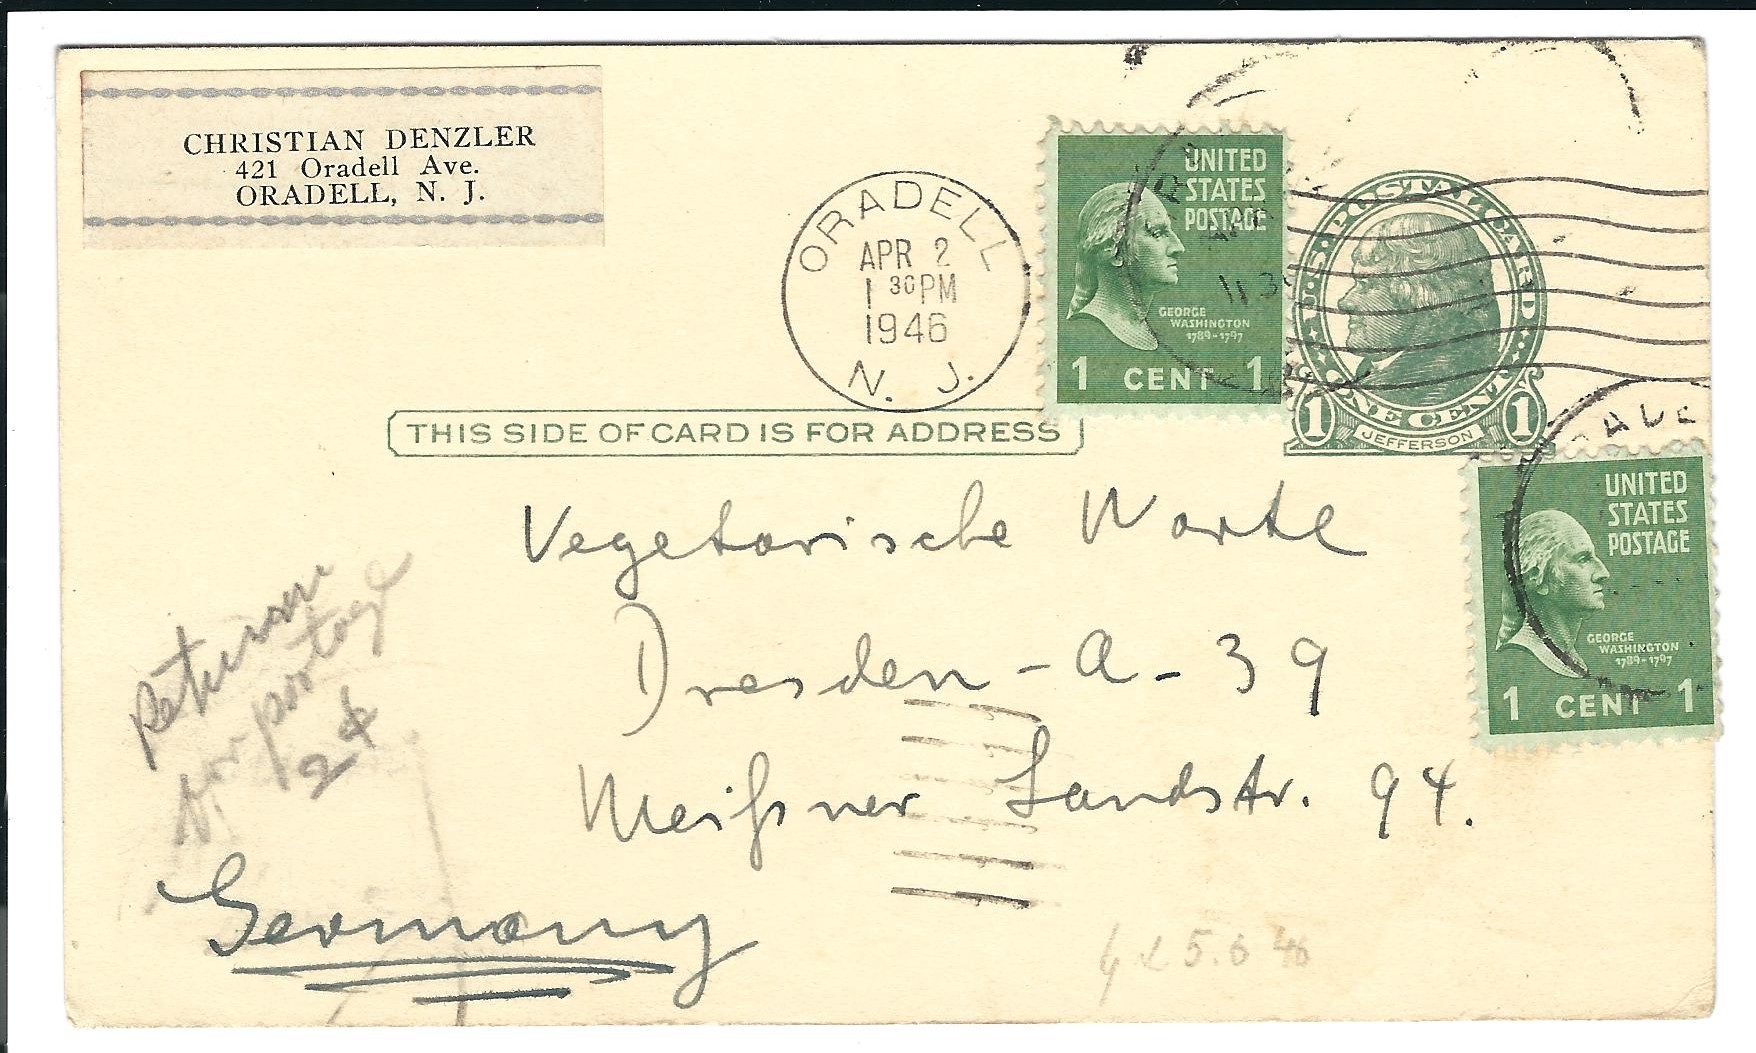 CHRISTIAN DENZLER
421 Oradell Ave.
ORADELL, N. J.
ORADELL
APR 2
1 30 PM
1946
N. J.
UNITED
STATES
POSTAGE
GEORGE
WASHINGTON
1789-1797
1 CENT 1
U.S. POSTAL CARD
ONE CENT
1 1
JEFFERSON
THIS SIDE OF CARD IS FOR ADDRESS
UNITED
STATES
POSTAGE
GEORGE
WASHINGTON
1789-1797
1 CENT 1
Vegetarische Warte
Dresden-A-39
Meißner Landstr. 94.
Germany
Return
for postage
2¢
5.6 46